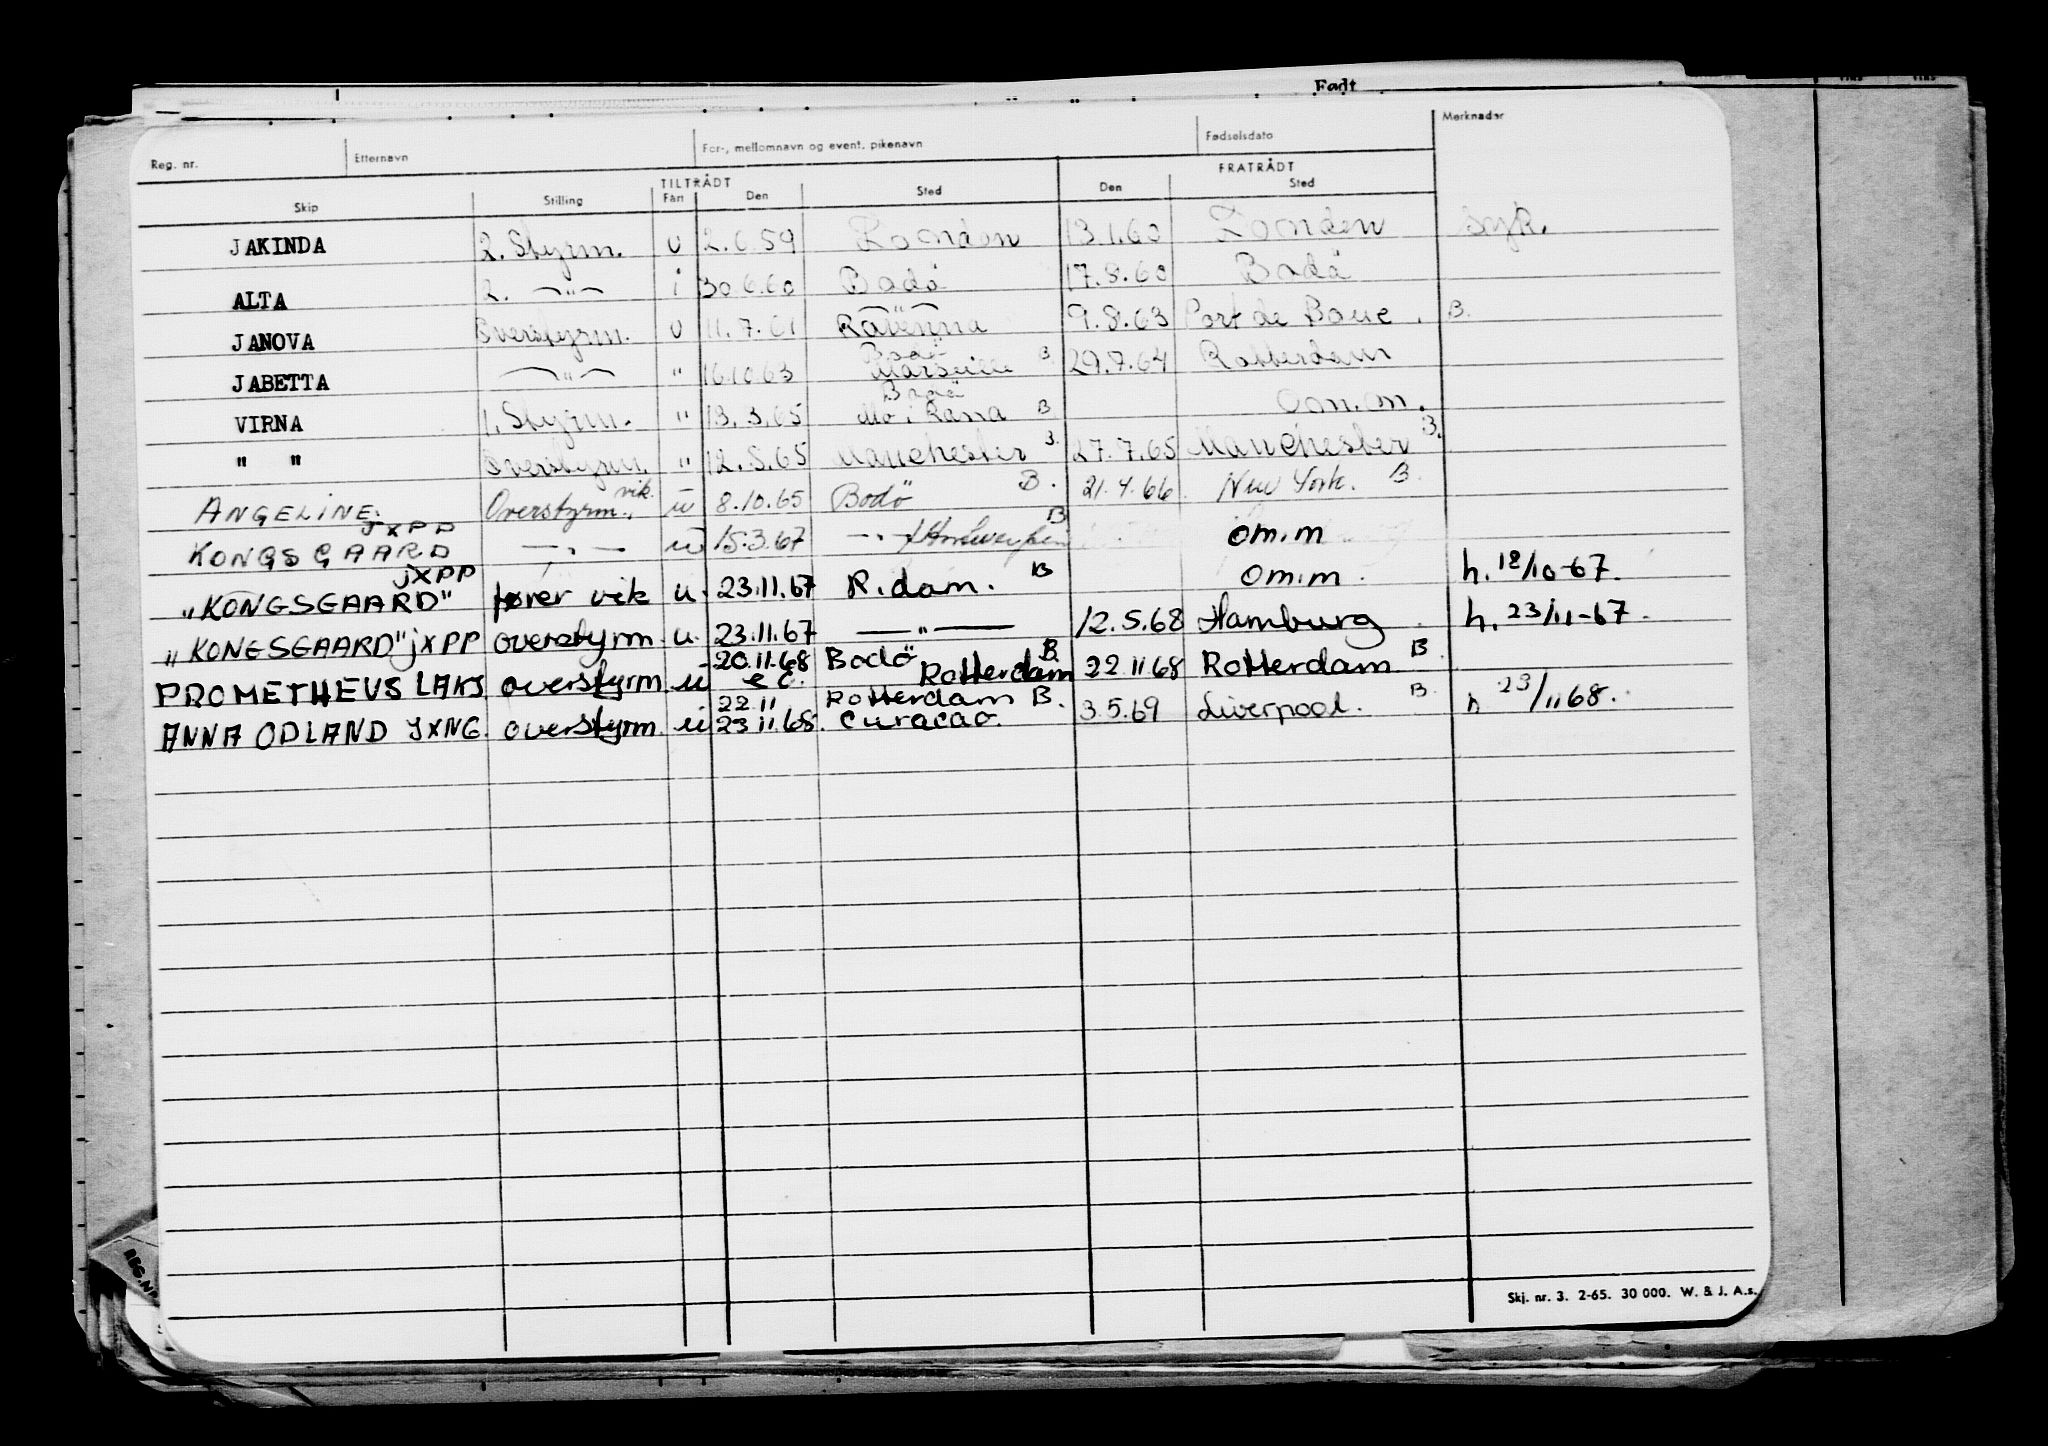 Født
Reg. nr. Etternavn For-, mellomnavn og event. pikenavn Fødselsdato Merknader
TILTRÅDT FRATRÅDT
Skip Stilling Fart Den Sted Den Sted
JAKINDA 2. Styrm. u 2.6.59 London 13.1.60 London syk.
ALTA 2. —"— i 30.6.60 Bodö 17.8.60 Bodö
JANOVA Overstyrm. u 11.7.61 Ravenna 9.8.63 Port de Bouc. B.
Bodö
JABETTA —"— " 16.10.63 Marseille B. 29.7.64 Rotterdam
Bodö
VIRNA 1. Styrm. " 13.3.65 Mo i Rana B Om.m.
" " Overstyrm. " 12.5.65 Manchester B. 27.7.65 Manchester B.
ANGELINE. Overstyrm. vik. u 8.10.65 Bodö B. 21.4.66 New York. B.
JXPP
KONGSGAARD —"— u 15.3.67 —"— /Antwerpen B om.m
jXPP
"KONGSGAARD" fører vik u. 23.11.67 R.dam. B om.m. h. 18/10-67.
"KONGSGAARD" jXPP overstyrm. u. 23.11.67 —"— 12.5.68 Hamburg. h. 23/11-67.
PROMETHEUS LAKJ overstyrm u 20.11.68 e c. Bodö Rotterdam B. 22.11.68 Rotterdam B
22.11 Rotterdam B.
ANNA ODLAND JXNG. overstyrm. u 23.11.68. Curacao. 3.5.69 Liverpool. B. h 23/11 68.
REG.NR
Skj. nr. 3. 2-65. 30 000. W. & J. A.s.